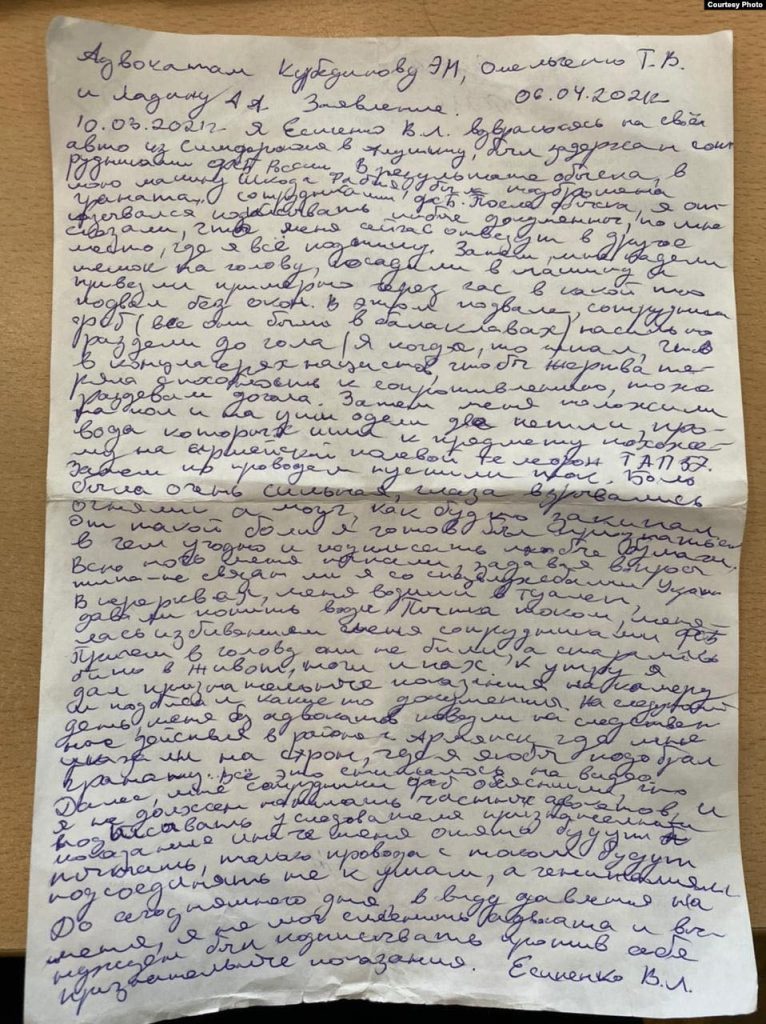 Courtesy Photo
Адвокатам Курбединову ЭМ, Омельченко Т.В.
и Ладину АА Заявление. 06.04.2021г
10.03.2021г я Есипенко В.Л. возвращаюсь на своём
авто из Симферополя в Алушту, был задержан сот
рудниками ФСБ России. В результате обыска, в
мою машину Шкода Фабия, была подброшена
граната, сотрудниками ФСБ. После обыска, я от
казывался подписывать любые документы, но мне
сказали, что меня сейчас отвезут в другое
место, где я всё подпишу. Затем, мне надели
мешок на голову, посадили в машину и
привезли примерно через час в какой то
подвал без окон. В этом подвале, сотрудники
ФСБ (все они были в балаклавах) насильно
раздели до гола (я когда, то читал, что
в концлагерях нацистов, чтобы жертва те-
ряла способность к сопротивлению, тоже
раздевали догола. Затем меня положили
на пол и на уши одели две петли, про-
вода которых шли к предмету похоже-
му на армейский полевой телефон ТАП 57.
Затем по проводам пустили ток. Боль
была очень сильная, глаза взрывались
огнями а мозг, как будто закипал.
От такой боли я готов был признаться
в чем угодно и подписать любые бумаги.
Всю ночь меня пытали, задавая вопросы
типа-не связан ли я со спецслужбами Украины
В перерывах, меня водили в туалет,
давали попить воды. Пытка током, меня-
лась избиванием меня сотрудниками ФСБ
Причем в голову они не били, а старались
бить в живот, ноги и пах. К утру я
дал признательные показания на камеру
и подписал какие то документы. На следующий
день меня без адвокатов повезли на следствен
ные действия в район г. Армянск, где мне
указали на схрон, где я якобы подобрал
гранату. Всё это снималось на видео.
Далее, мне сотрудники ФСБ объяснили, что
я не должен нанимать частных адвокатов, и
подписывать у следователя признательные
показание иначе меня опять будут
пытать, только провода с током будут
подсоединять не к ушам, а гениталиям.
До сегодняшнего дня, в виду давления на
меня, я не мог сменить адвоката и вы-
нужден был подписывать против себя
признательные показания. Есипенко В.Л.